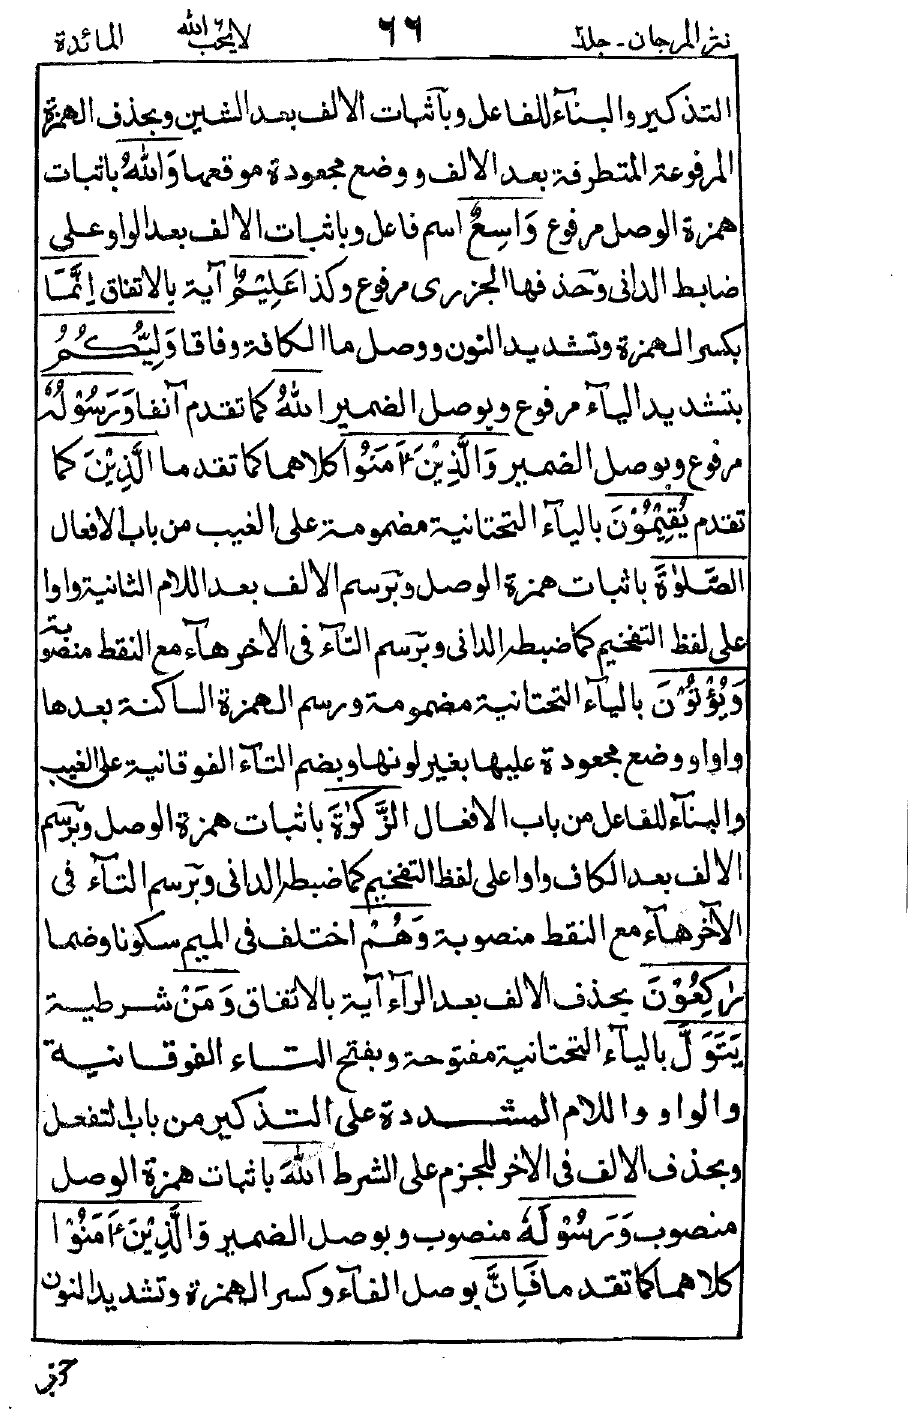 نثر المرجان - جلد ٢ ٦٦ لا يحب الله ٦ المائدة
التذكير والبنآء للفاعل وبآثبات الالف بعد الشين وبحذف الهمزة
المرفوعة المتطرفة بعد الالف ووضع مجعودة موقعها وَاللهُ باثبات
همزة الوصل مرفوع وَاسِعٌ اسم فاعل وباثبات الالف بعد الواو على
ضابط الدانى وحذفها الجزرى مرفوع وكذا عَلِيْمٌ آية بالاتفاق اِنَّمَا
بكسر الهمزة وتشديد النون ووصل ما الكافة وفاقا وَلِيُّكُمُ
بتشديد اليآء مرفوع وبوصل الضمير اللهُ كما تقدم آنفا وَرَسُوْلُهٗ
مرفوع وبوصل الضمير وَالَّذِيْنَ ءَامَنُوْا كلاهما كما تقدما الَّذِيْنَ كما
تقدم يُقِيْمُوْنَ باليآء التحتانية مضمومة على الغيب من باب الافعال
الصَّلٰوةَ باثبات همزة الوصل وبرسم الالف بعد اللام الثانية واوا
على لفظ التفخيم كما ضبطه الدانى وبرسم التآء فى الاخر هآء مع النقط منصوبة
وَيُؤْتُوْنَ باليآء التحتانية مضمومة ورسم الهمزة الساكنة بعدها
واوا ووضع مجعودة عليها بغير لونها وبضم التآء الفوقانية على الغيب
والبنآء للفاعل من باب الافعال الزَّكٰوةَ باثبات همزة الوصل وبرسم
الالف بعد الكاف واوا على لفظ التفخيم كما ضبطه الدانى وبرسم التآء فى
الآخر هآء مع النقط منصوبة وَهُمْ اختلف فى الميم سكونا وضما
رٰكِعُوْنَ بحذف الالف بعد الرآء آية بالاتفاق وَمَنْ شرطية
يَتَوَلَّ باليآء التحتانية مفتوحة وبفتح التاء الفوقانية
والواو واللام المشددة على التذكير من باب التفعل
وبحذف الالف فى الاخر للجزم على الشرط اللهَ باثبات همزة الوصل
منصوب وَرَسُوْلَهٗ منصوب وبوصل الضمير وَالَّذِيْنَ ءَامَنُوْا
كلاهما كما تقدما فَاِنَّ بوصل الفآء وكسر الهمزة وتشديد النون